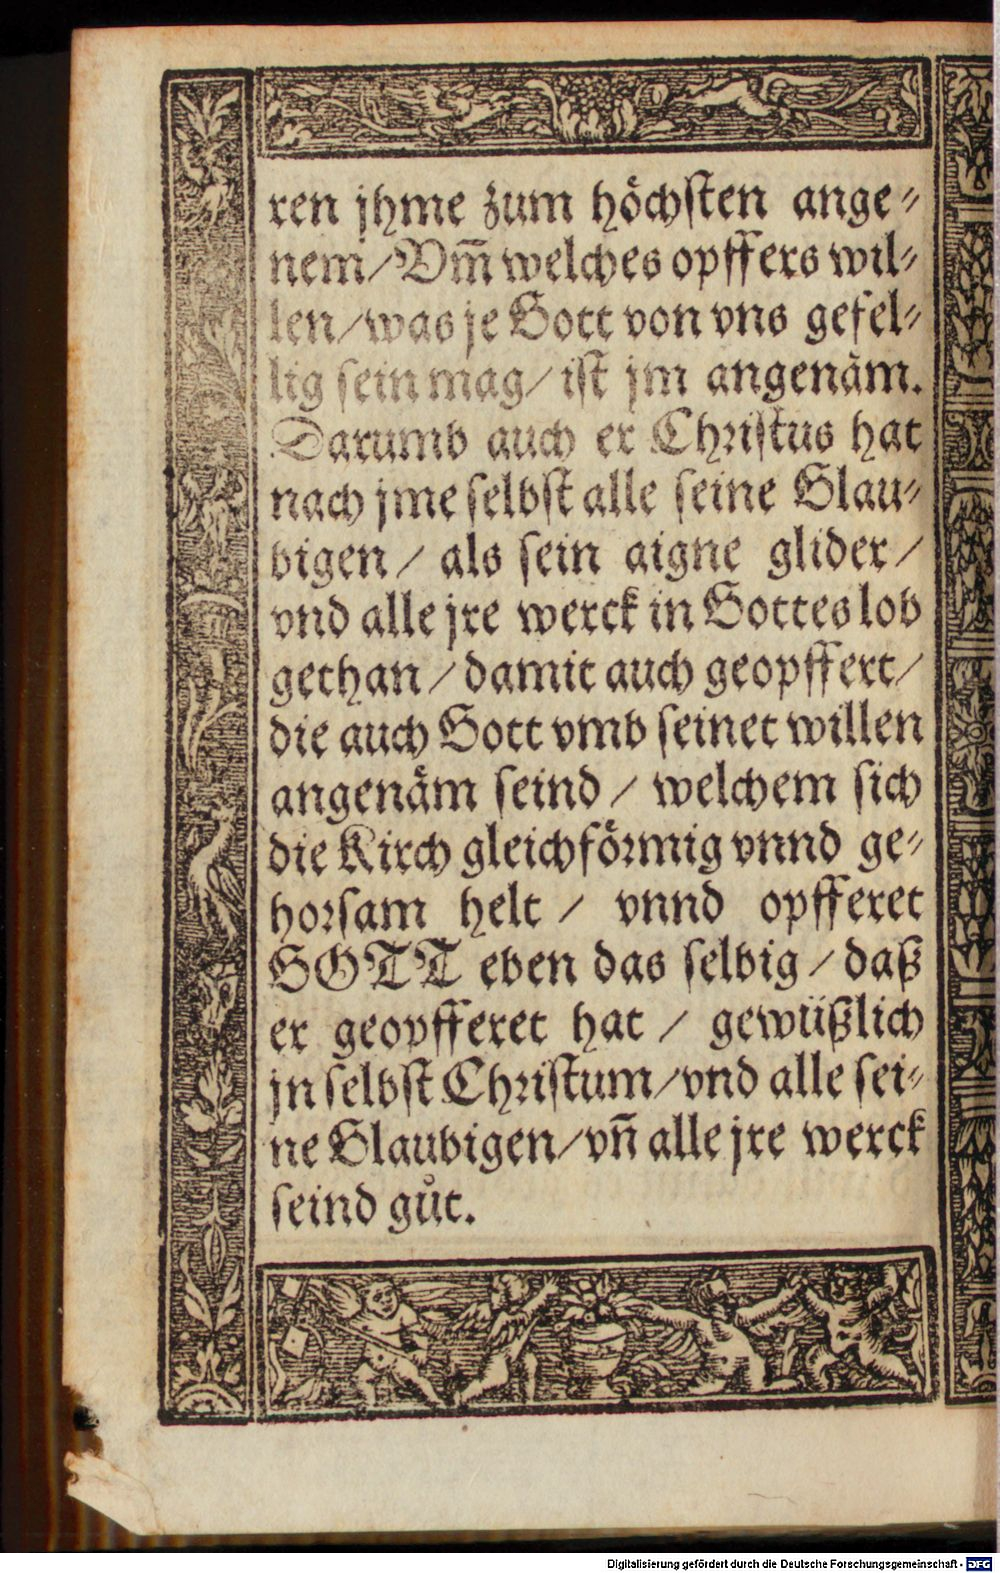 ren jhme zum höchſten ange⸗
nem/Vm̃ welches opffers wil⸗
len/was je Gott von vns gefel⸗
lig ſein mag/ iſt jm angenäm.
Darumb auch er Chriſtus hat
nach jme ſelbſt alle ſeine Glau⸗
bigen/ als ſein aigne glider/
vnd alle jre werck in Gottes lob
gethan/damit auch geopffert/
die auch Gott vmb ſeinet willen
angenäm ſeind/ welchem ſich
die Kirch gleichförmig vnnd ge⸗
horſam helt/ vnnd opfferet
GOTT eben das ſelbig/daß
er geopfferet hat/ gewüßlich
jn ſelbſt Chriſtum/vnd alle ſei⸗
ne Glaubigen/vñ alle jre werck
ſeind gůt.
Digitalisierung gefördert durch die Deutsche Forschungsgemeinschaft - DFG